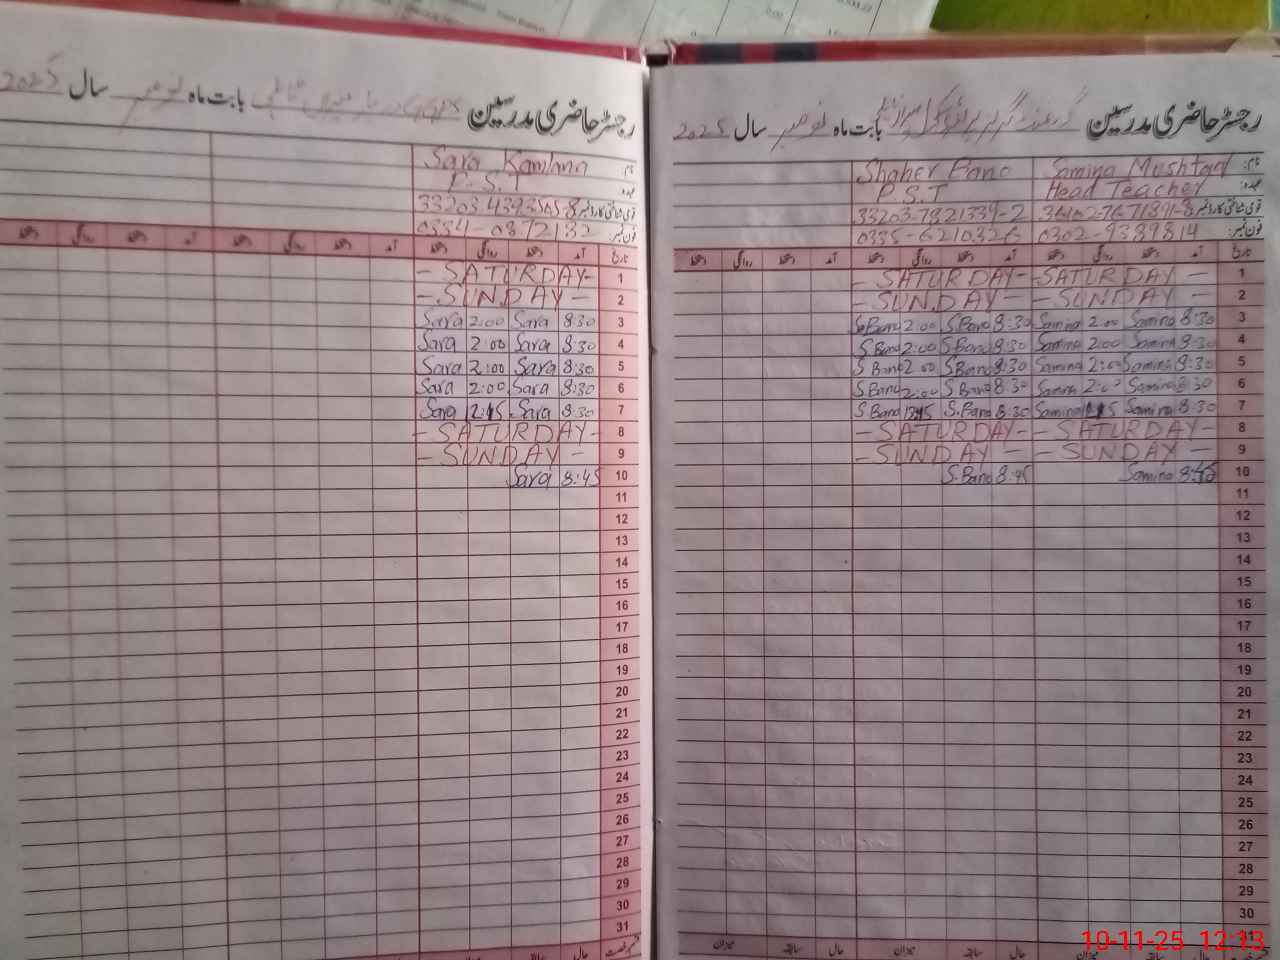 رجسٹر حاضری مدرسین بابت ماہ نومبر سال 2025
نام: Sara Kamlana
عہدہ: P.S.T
قومی شناختی کارڈ نمبر: 33203-4393565-8
فون نمبر: 0334-0872132
تاریخ آمد دستخط روانگی دستخط آمد دستخط روانگی دستخط آمد دستخط روانگی دستخط
1 - SATURDAY -
2 - SUNDAY -
3 8:30 Sara 2:00 Sara
4 8:30 Sara 2:00 Sara
5 8:30 Sara 2:00 Sara
6 8:30 Sara 2:00 Sara
7 8:30 Sara 12:15 Sara
8 - SATURDAY -
9 - SUNDAY -
10 8:45 Sara
11
12
13
14
15
16
17
18
19
20
21
22
23
24
25
26
27
28
29
30
31
رجسٹر حاضری مدرسین بابت ماہ نومبر سال 2025
نام: Samina Mushtaq Shaher Bano
عہدہ: Head Teacher P.S.T
قومی شناختی کارڈ نمبر: 33203-7821339-2
فون نمبر: 0302-9389814 0335-6210326
تاریخ آمد دستخط روانگی دستخط آمد دستخط روانگی دستخط آمد دستخط روانگی دستخط
1 - SATURDAY - - SATURDAY -
2 - SUNDAY - - SUNDAY -
3 8:30 Samina 2:00 Samina 8:30 S.Bano 2:00 S.Bano
4 8:30 Samina 2:00 Samina 8:30 S.Bano 2:00 S.Bano
5 8:30 Samina 2:00 Samina 8:30 S.Bano 2:00 S.Bano
6 8:30 Samina 2:00 Samina 8:30 S.Bano 2:00 S.Bano
7 8:30 Samina Samina 8:30 S.Bano S.Bano
8 - SATURDAY - - SATURDAY -
9 - SUNDAY - - SUNDAY -
10 Samina 8:45 S.Bano
11
12
13
14
15
16
17
18
19
20
21
22
23
24
25
26
27
28
29
30
31
میزان سابقہ حال میزان سابقہ حال
10-11-25 12:13